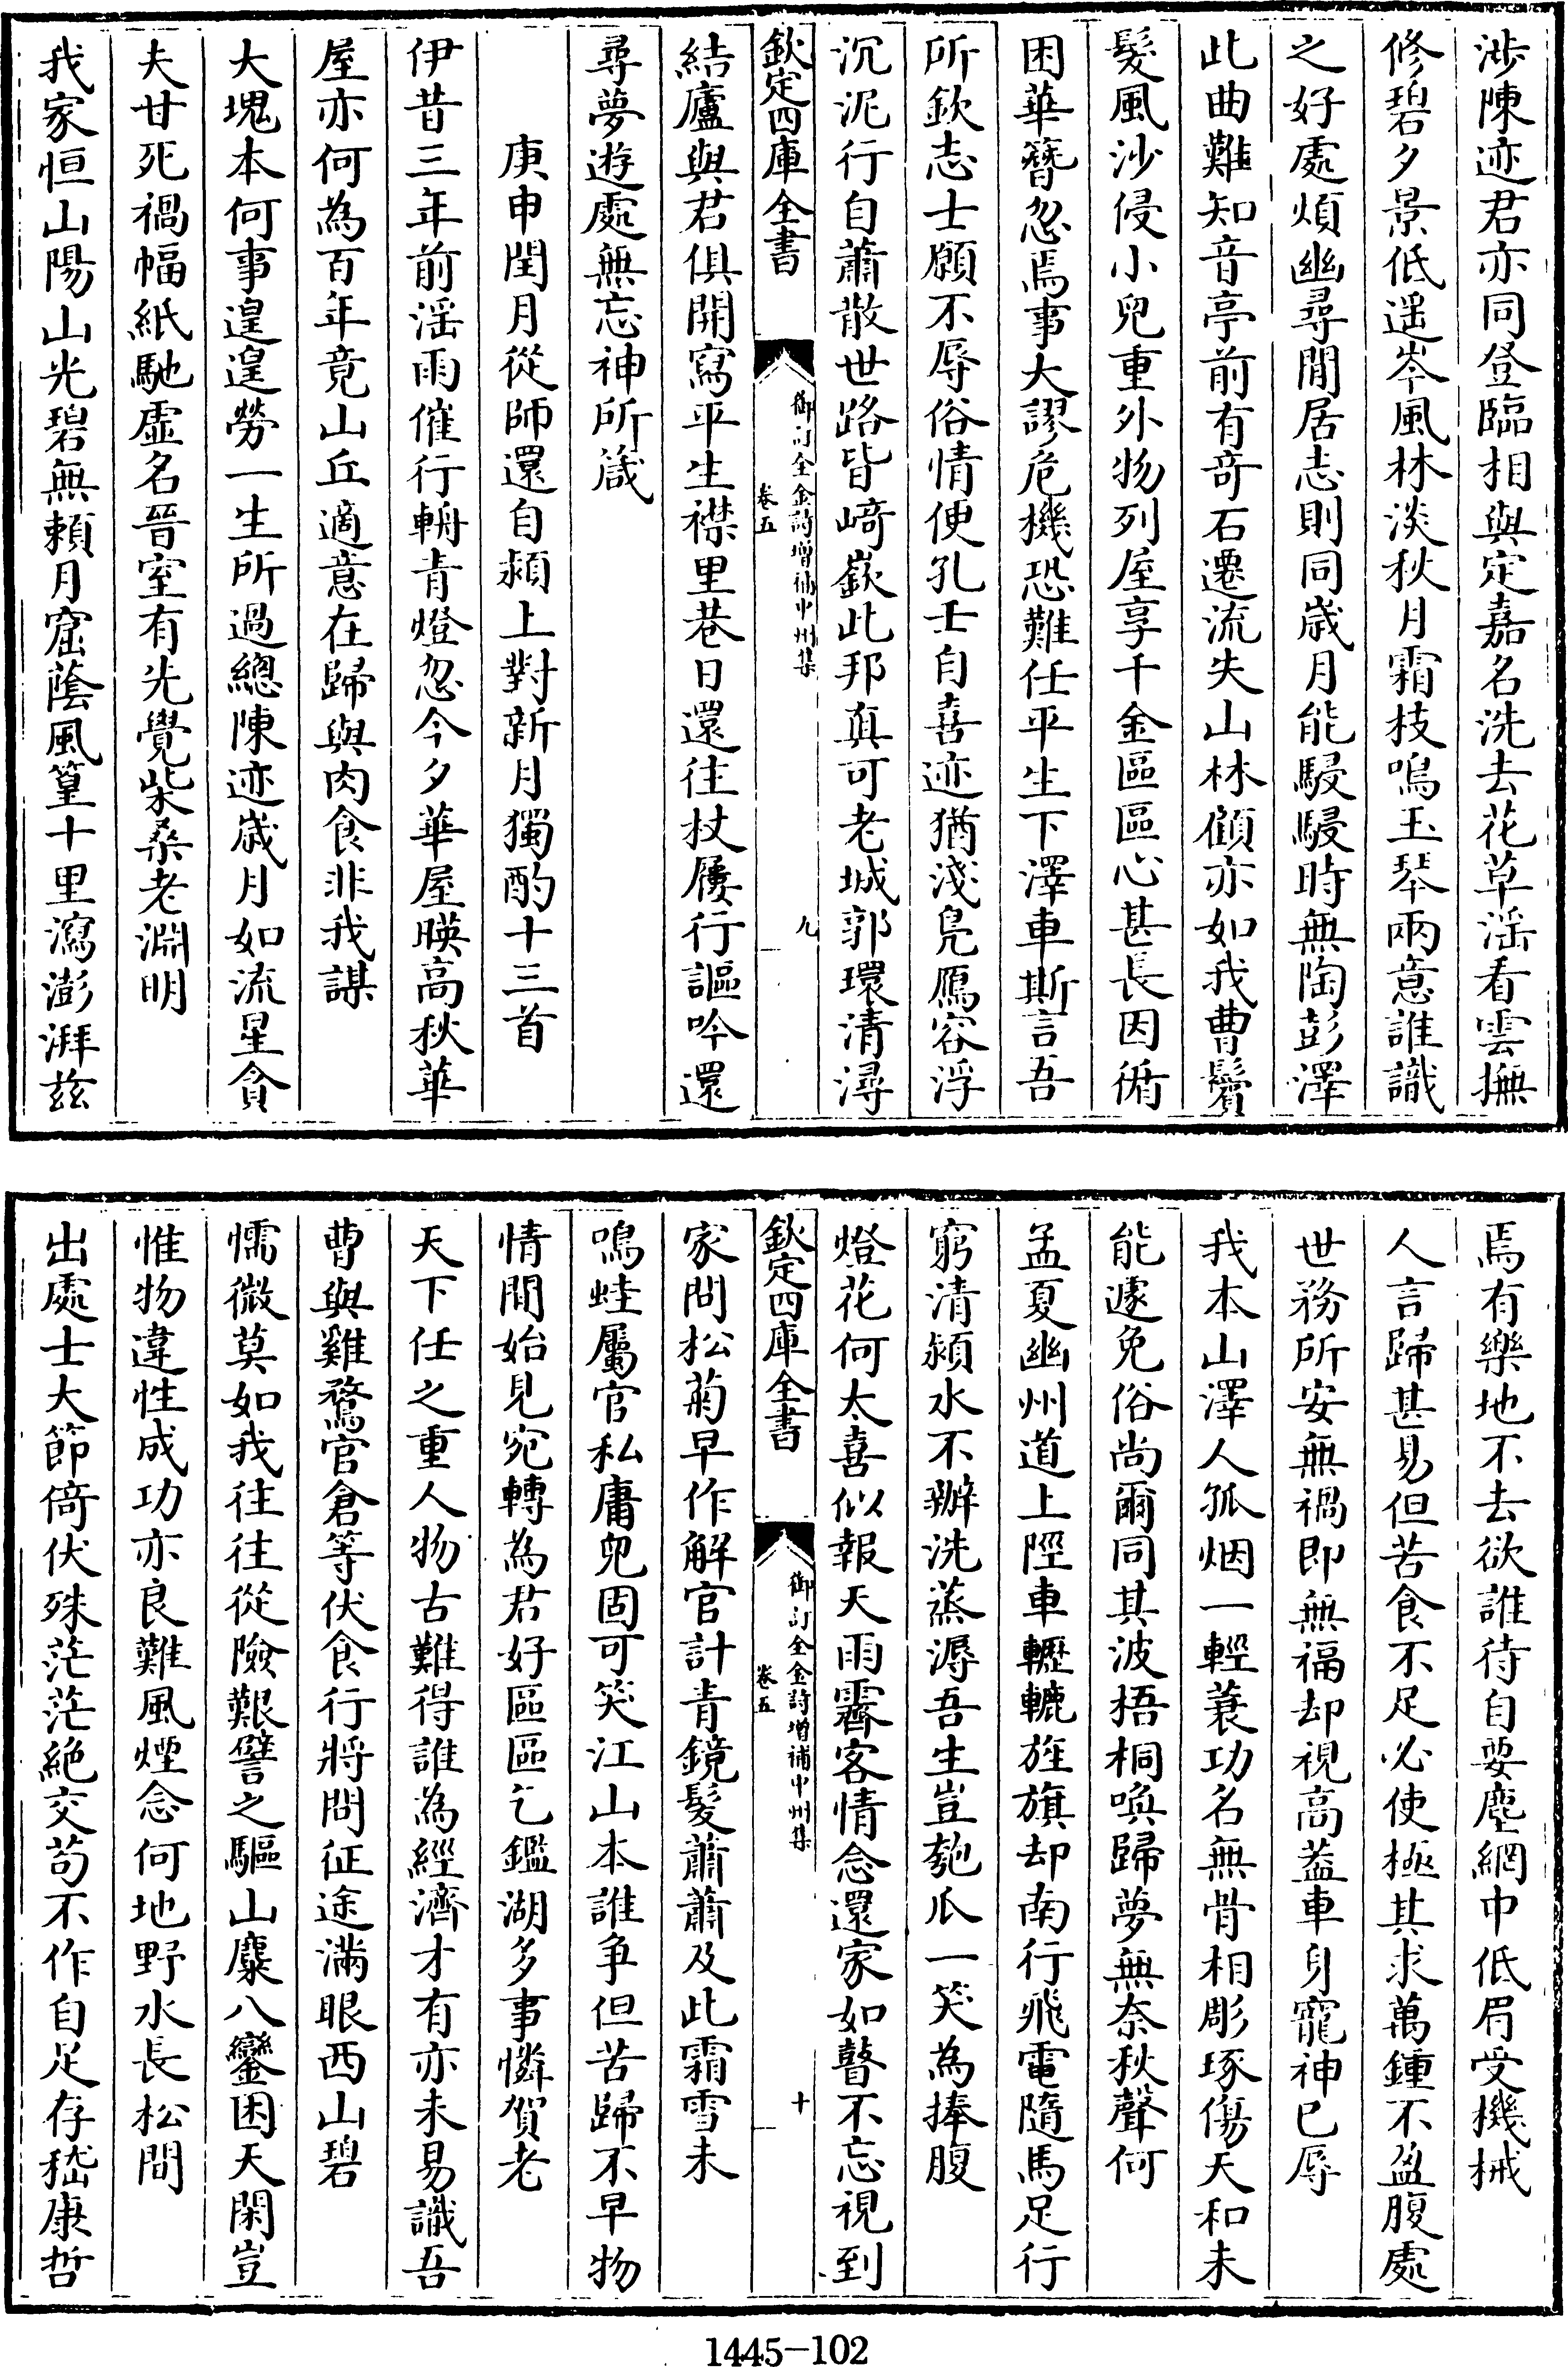 渉陳迹君亦同登臨相與定嘉名洗去花草滛看雲撫
修碧夕景低遥岑風林淡秋月霜枝鳴玉琴兩意誰識
之好處煩幽尋閒居志則同歳月能駸駸時無陶彭澤
此曲難知音亭前有竒石遷流失山林顧亦如我曹鬢
髪風沙侵小兒重外物列屋享千金區區心甚長因循
困華簪忽焉事大謬危機恐難任平生下澤車斯言吾
所欽志士願不辱俗情便孔壬自喜迹猶淺凫鴈容浮
沉泥行自蕭散世路皆﨑嶔此邦真可老城郭環清潯
欽定四庫全書
御訂全金詩增補中州集
卷五
九
結廬與君俱開寫平生襟里巷日還往杖屨行謳吟還
尋夢遊處無忘神所箴
庚申閏月從師還自潁上對新月獨酌十三首
伊昔三年前滛雨催行輈青燈忽今夕華屋暎高秋華
屋亦何為百年竟山丘適意在歸與肉食非我謀
大塊本何事遑遑勞一生所過總陳迹歳月如流星貪
夫甘死禍幅紙馳虚名晉室有先覺柴桑老淵明
我家恒山陽山光碧無頼月窟蔭風篁十里瀉澎湃兹
焉有樂地不去欲誰待自嬰塵網中低眉受機械
人言歸甚易但苦食不足必使極其求萬鍾不盈腹處
世務所安無禍即無福却視高葢車身寵神已辱
我本山澤人孤烟一輕蓑功名無骨相彫琢傷天和未
能遽免俗尚爾同其波梧桐喚歸夢無奈秋聲何
孟夏幽州道上陘車轣轆旌旗却南行飛電隨馬足行
窮清潁水不辦洗蒸溽吾生豈匏瓜一笑為捧腹
燈花何太喜似報天雨霽客情念還家如瞽不忘視到
欽定四庫全書
御訂全金詩增補中州集
卷五
十
家問松菊早作解官計青鏡髪蕭蕭及此霜雪未
鳴蛙屬官私庸兒固可笑江山本誰争但苦歸不早物
情閒始見宛轉為君好區區乞鑑湖多事憐賀老
天下任之重人物古難得誰為經濟才有亦未易識吾
曹與雞鶩官倉等伏食行將問征途滿眼西山碧
懦微莫如我往往從險艱譬之驅山麋八鑾困天閑豈
惟物違性成功亦良難風煙念何地野水長松間
出處士大節倚伏殊茫茫絶交茍不作自足存嵇康哲
1445-102